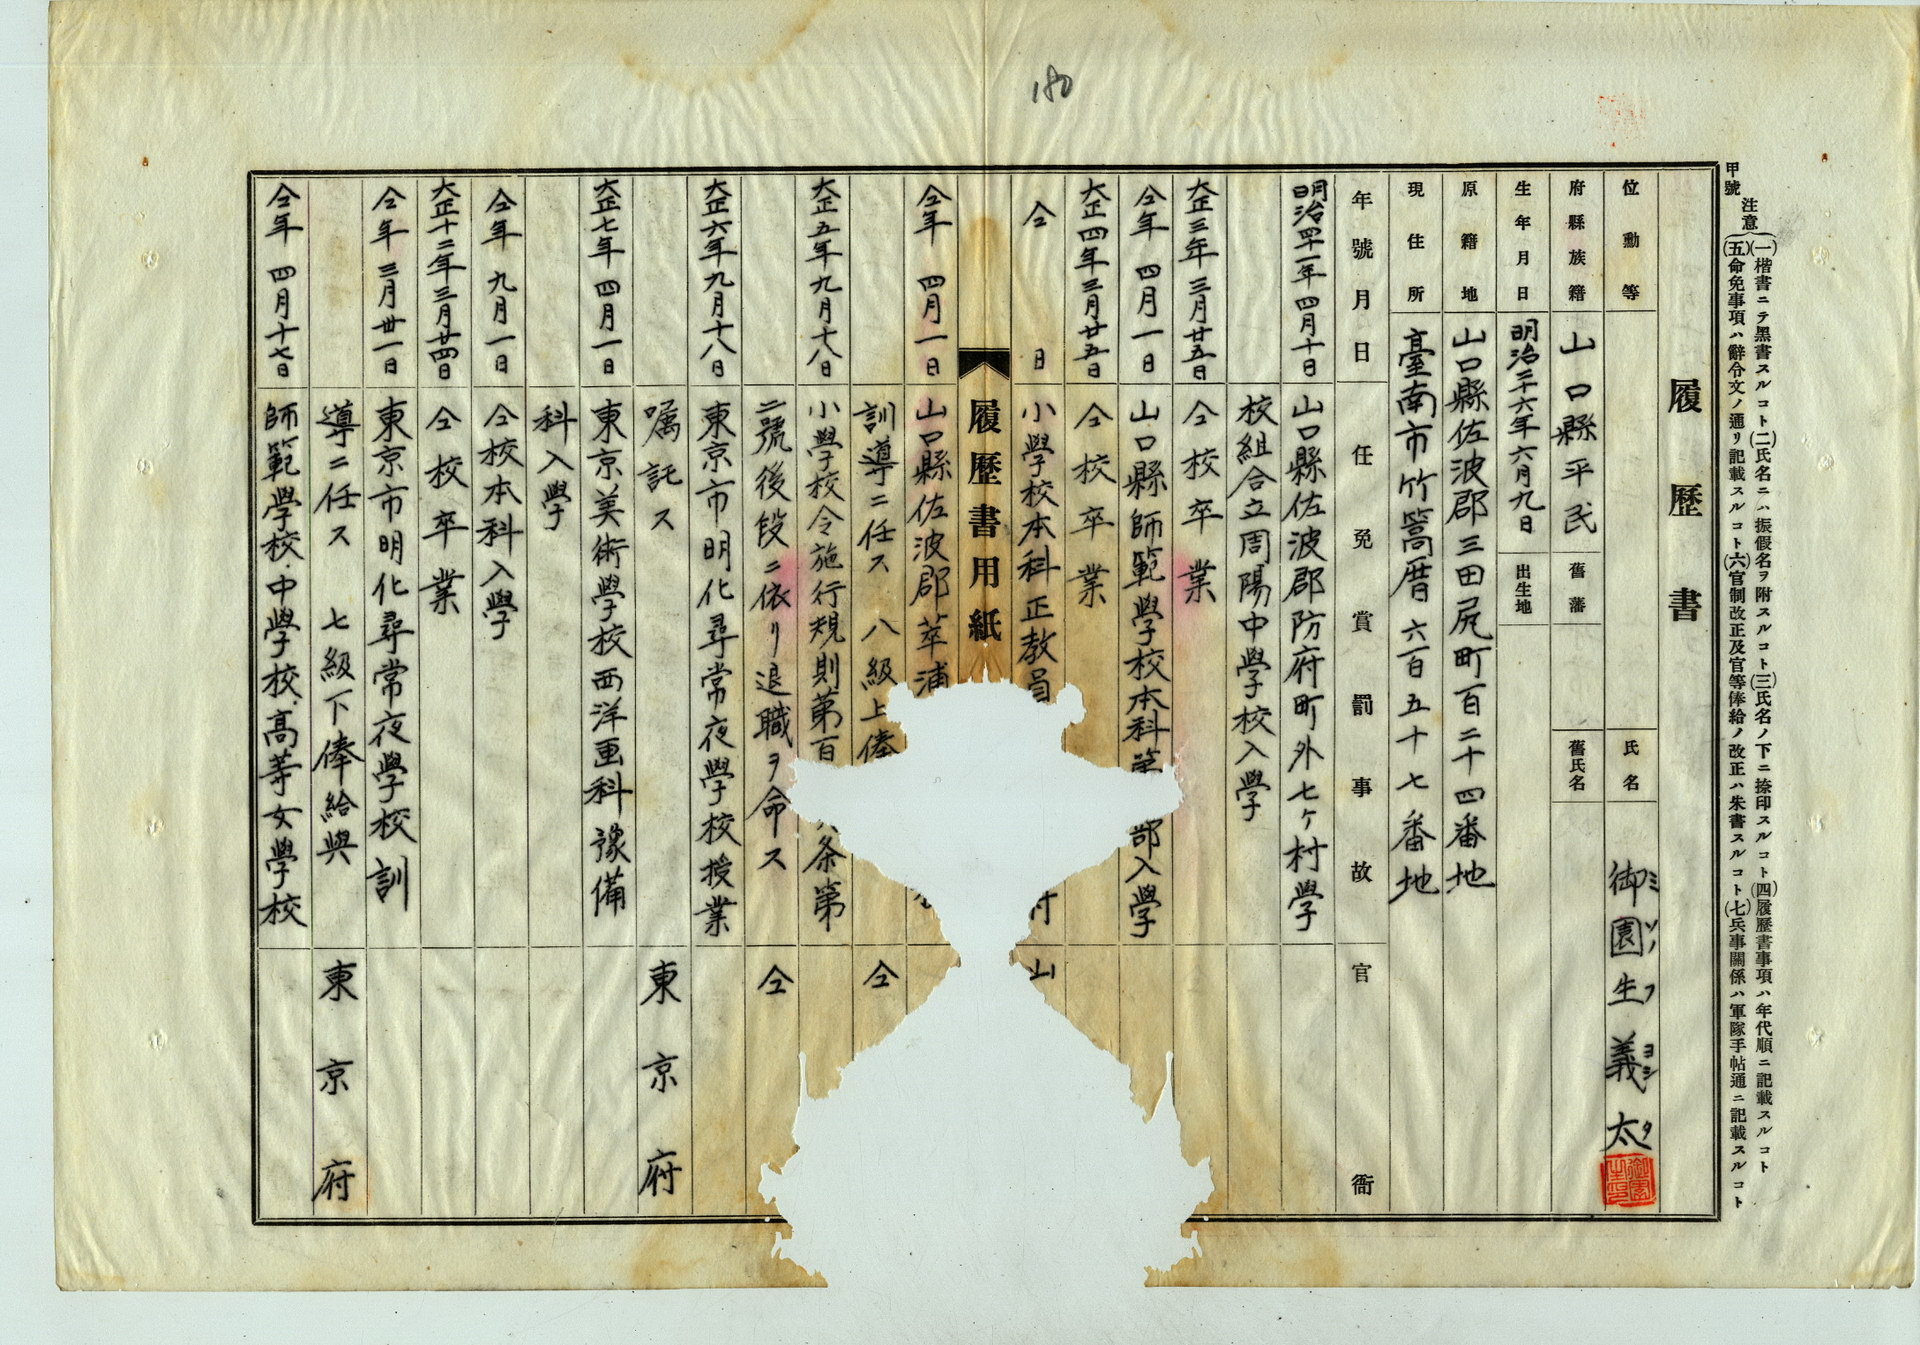 180
甲號
注意
(一)楷書ニテ黑書スルコト(二)氏名ニハ振假名ヲ附スルコト(三)氏名ノ下ニ捺印スルコト(四)履歷書事項ハ年代順ニ記載スルコト
(五)命免事項ハ辭令文ノ通リ記載スルコト(六)官制改正及官等俸給ノ改正ハ朱書スルコト(七)兵事關係ハ軍隊手帖通ニ記載スルコト
履歷書
位勳等
氏名
御園生義太
ミソノフヨシタ
府縣族籍
山口縣平民
舊藩
舊氏名
生年月日
明治二十六年六月九日
出生地
原籍地
山口縣佐波郡三田尻町百二十四番地
現住所
臺南市竹篙厝六百五十七番地
年號月日
任免賞罰事故
官衙
明治四十一年四月十日
山口縣佐波郡防府町外七ケ村學
校組合立周陽中學校入學
大正三年三月廿五日
仝校卒業
仝年四月一日
山口縣師範學校本科第
部入學
大正四年三月廿五日
仝校卒業
仝日
小學校本科正教員
山
履歷書用紙
仝年四月一日
山口縣佐波郡華浦
訓導ニ任ス 八級上俸
仝
大正五年九月十八日
小學校令施行規則第百
条第
二號後段ニ依リ退職ヲ命ス
仝
大正六年九月十八日
東京市明化尋常夜學校授業
嘱託ス
東京府
大正七年四月一日
東京美術學校西洋画科豫備
科入學
仝年九月一日
仝校本科入學
大正十二年三月廿四日
仝校卒業
仝年三月卅一日
東京市明化尋常夜學校訓
導ニ任ス 七級下俸給與
東京府
仝年四月十七日
師範學校.中學校.高等女學校